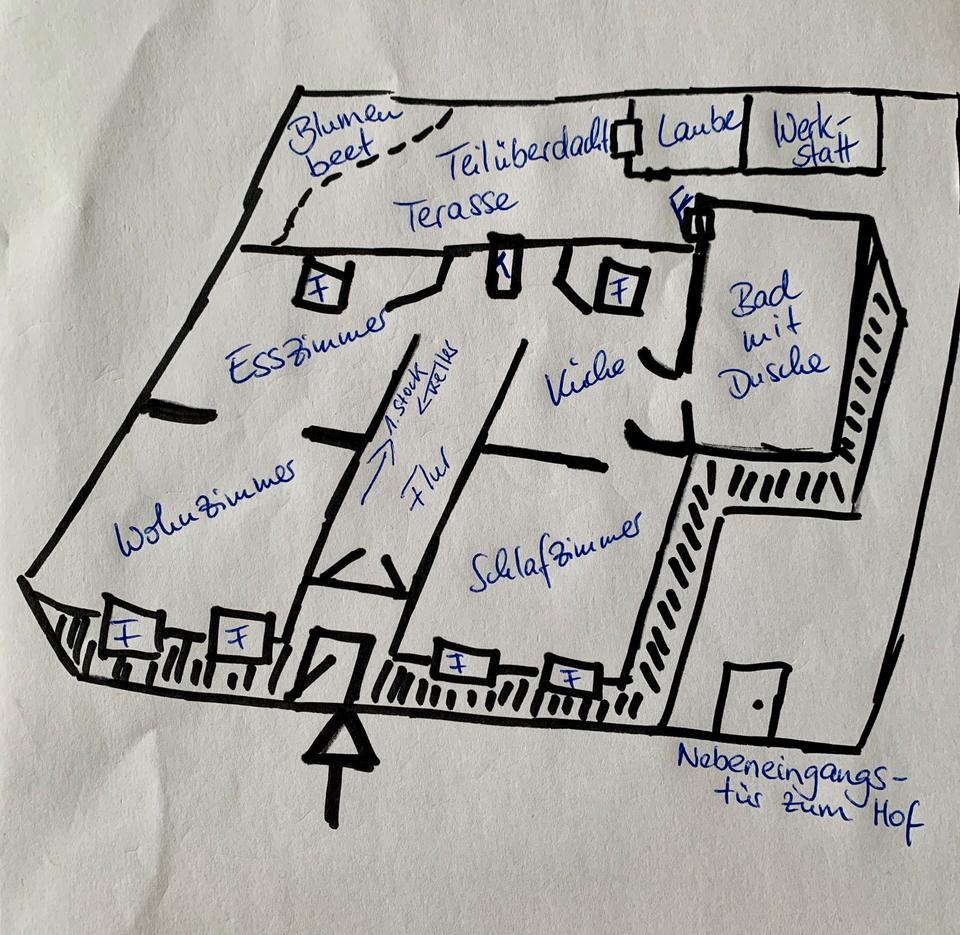 Blumen
beet
Teilüberdacht
Terasse
Laube
Werk-
statt
F
F
F
Esszimmer
1. Stock
Keller
Flur
Küche
Bad
mit
Dusche
Wohnzimmer
Schlafzimmer
F
F
F
F
Nebeneingangs-
tür zum Hof